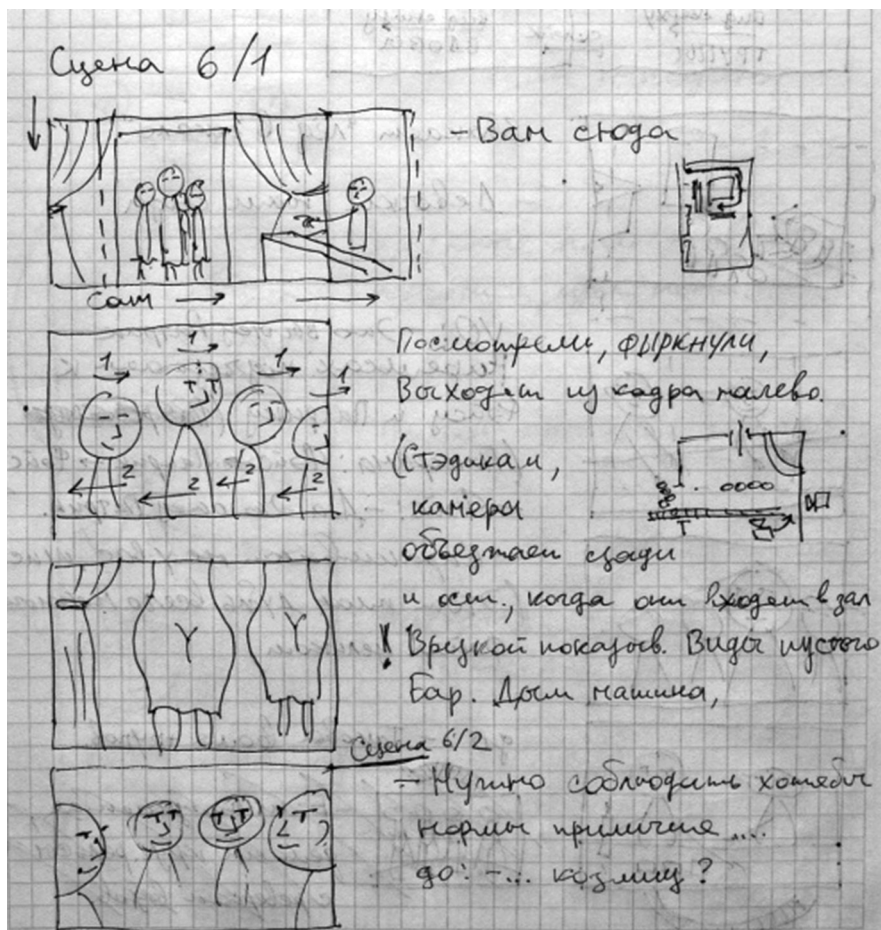 Сцена 6/1
– Вам сюда
Cam
Посмотрели, фыркнули,
Выходят из кадра налево.
1 1 1 1
2 2 2 2
(Стэдикам,
камера
объезжает сзади
и ост., когда они входят в зал
! Врезкой показыв. Виды пустого
Бар. Дым машина,
Y Y
Сцена 6/2
– Нужно соблюдать хотябы
нормы приличия ....
до: – ...